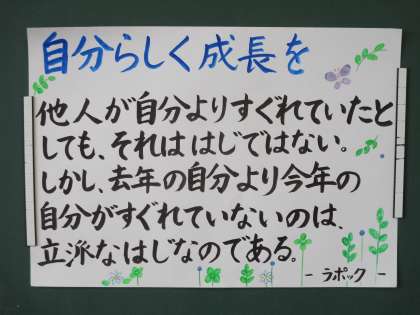 自分らしく成長を
他人が自分よりすぐれていたと
しても、それははじではない。
しかし、去年の自分より今年の
自分がすぐれていないのは、
立派なはじなのである。
- ラポック -